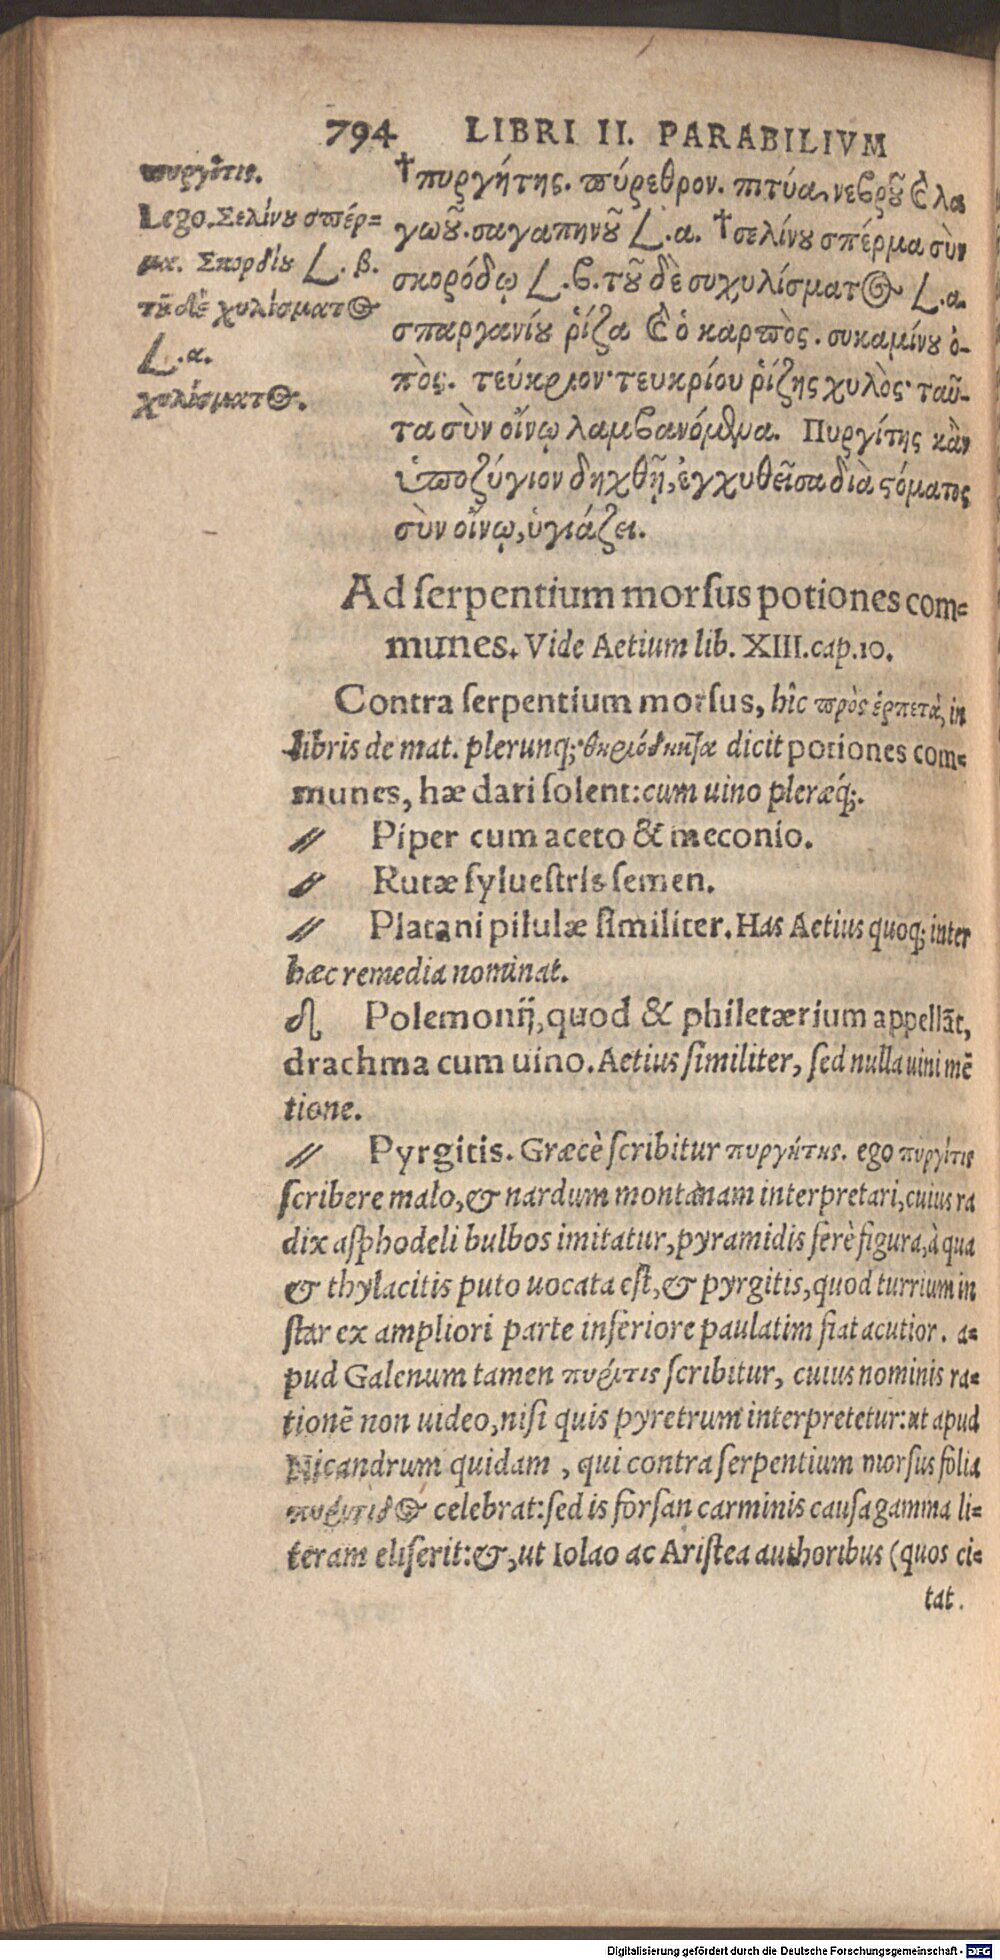 794 LIBRI II. PARABILIVM
πυργῖτις.
Lego. Σελίνȣ σπέρ=
μα. Σκορδίȣ L. β.
τȣ͂ δὲ χυλίσματος
L. α.
χυλίσματος.
†πυργήτης. πύρεθρον. πιτύα, νεβρȣ͂ καὶ λα
γωȣ͂. σαγαπηνȣ͂ L. α. †σελίνȣ σπέρμα σὺν
σκορόδῳ L. ϐ. τȣ͂ δὲ συχυλίσματος L. α.
σπαργανίȣ ῥίζα καὶ ὁ καρπὸς. συκαμίνȣ ὀ-
πὸς. τεύκριον· τευκρίου ῥίζης χυλὸς· ταῦ-
τα σὺν οἴνῳ λαμβανόμενα. Πυργίτης κἂν
ὑποζύγιον δηχθῇ, ἐγχυθεῖσα διὰ στόματος
σὺν οἴνῳ, ὑγιάζει.
Ad ſerpentium morſus potiones com=
munes. Vide Aetium lib. XIII. cap. 10.
Contra ſerpentium morſus, hîc πρὸς ἑρπετὰ, in
libris de mat. plerunq; θηριόδηκτα dicit potiones com=
munes, hæ dari ſolent: cum uino pleræq́;.
〃 Piper cum aceto & meconio.
〃 Rutæ ſylueſtris ſemen.
〃 Platani pilulæ ſimiliter. Has Aetius quoq; inter
hæc remedia nominat.
Polemonij, quod & philetærium appellāt,
drachma cum uino. Aetius ſimiliter, ſed nulla uini mē
tione.
〃 Pyrgitis. Græcè ſcribitur πυργήτης. ego πυργίτις
ſcribere malo, & nardum montanam interpretari, cuius ra
dix aſphodeli bulbos imitatur, pyramidis ferè figura, à qua
& thylacitis puto uocata eſt, & pyrgitis, quod turrium in
ſtar ex ampliori parte inferiore paulatim fiat acutior. a=
pud Galenum tamen πυρίτις ſcribitur, cuius nominis ra=
tionē non uideo, niſi quis pyretrum interpretetur: ut apud
Nicandrum quidam, qui contra ſerpentium morſus folia
πυρίτιδος celebrat: ſed is forſan carminis cauſa gamma li=
teram eliſerit: &, ut Iolao ac Ariſtea authoribus (quos ci=
tat.
Digitalisierung gefördert durch die Deutsche Forschungsgemeinschaft - DFG